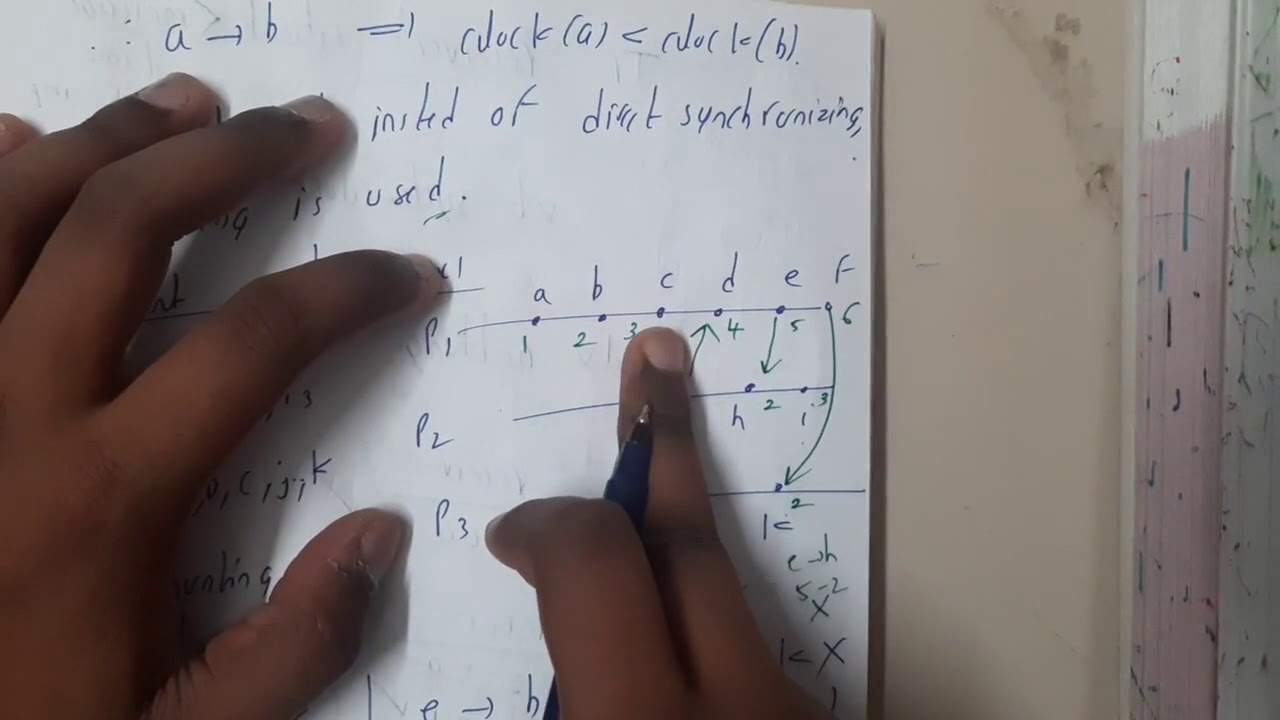 ∴ a → b ⇒ clock(a) < clock(b).
insted of dirct synchronizing,
is used.
a b c d e f
P1 1 2 3 4 5 6
P2 h 2 i 3
c, j, k
P3 2
k
e → h
5 - 2
X
k X
e → h